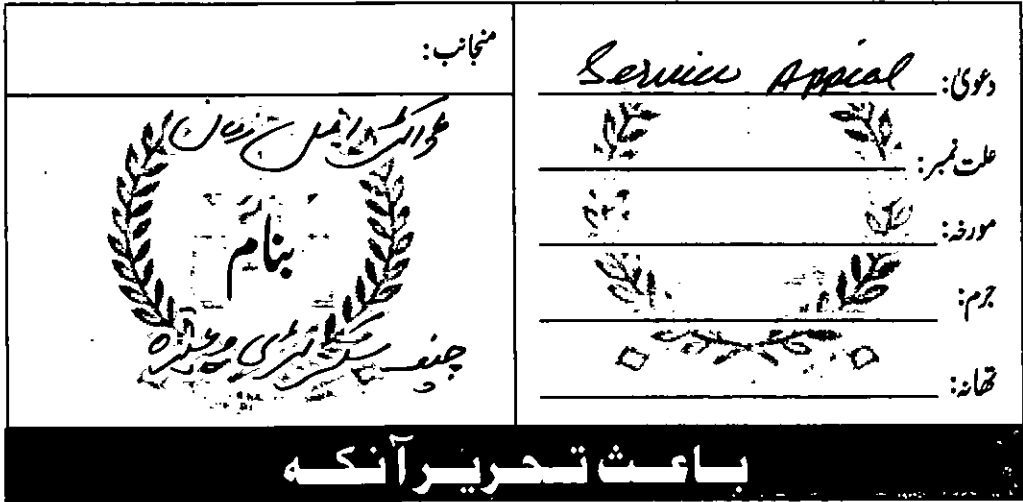 دعویٰ: Service Appeal
علت نمبر:
مورخہ:
جرم:
تھانہ:
منجانب:
ڈاکٹر ایمل زمان
بنام
چیف سیکرٹری وغیرہ
باعث تحریر آنکہ